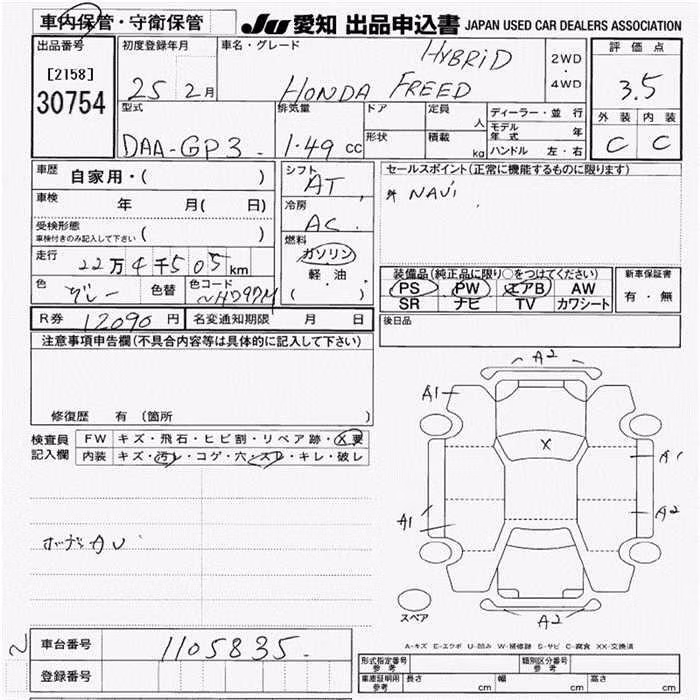 車内保管・守衛保管 JU 愛知 出品申込書 JAPAN USED CAR DEALERS ASSOCIATION
出品番号 [2158] 30754
初度登録年月 25 2月
車名・グレード HYBRID HONDA FREED
2WD ・ 4WD
評価点 3.5
外装 内装
C C
型式 DAA-GP3
排気量 1.49 cc
ドア 形状
定員 人
積載 kg
ディーラー・並行
モデル年式 年
ハンドル 左・右
車歴 自家用・( )
車検 年 月( 日)
受検形態 車検付きのみ記入して下さい ( )
走行 22万4千505km
色 グレー 色替 色コード NH097M
シフト AT
冷房 AC
燃料 ガソリン 軽油 ( ・ )
セールスポイント(正常に機能するものに限ります)
NAVI
装備品(純正品に限り○をつけてください)
PS PW エアB AW
SR ナビ TV カワシート
新車保証書 有・無
R券 12090円 名変通知期限 月 日
後日品
注意事項申告欄(不具合内容等は具体的に記入して下さい)
修復歴 有(箇所 )
検査員記入欄
FW キズ・飛石・ヒビ割・リペア跡・X要
内装 キズ・汚レ・コゲ・穴・スレ・キレ・破レ
A2
A1
X
A1
A1
A2
A2
スペア
A-キズ E-エクボ U-凹み W-補修跡 S-サビ C-腐食 XX-交換済
車台番号 1105835
登録番号
型式指定番号 参考 類別区分番号 参考
車庫証明用 参考 長さ cm 幅 cm 高さ cm